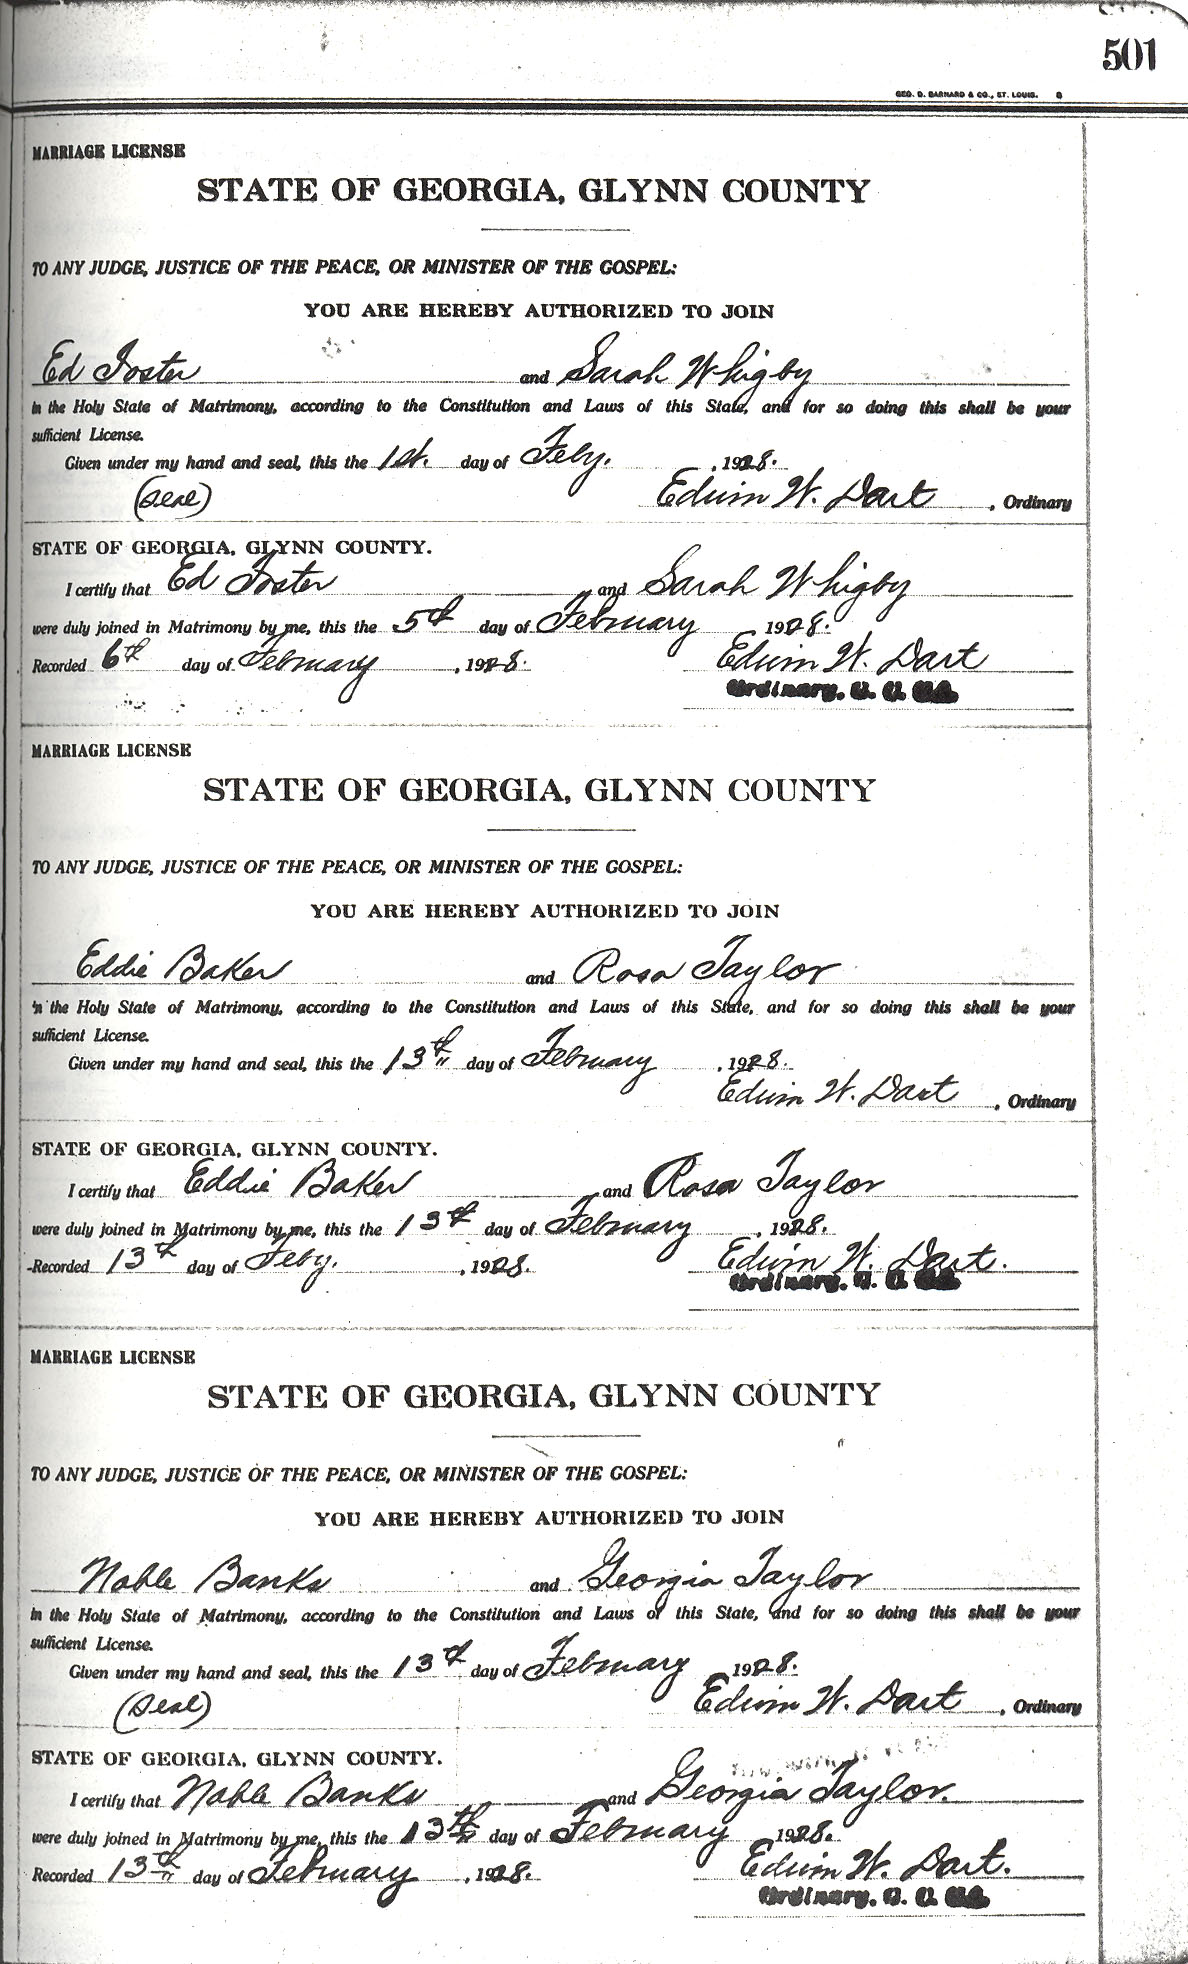 501
GEO. D. BARNARD & CO., ST. LOUIS. 8
MARRIAGE LICENSE
STATE OF GEORGIA, GLYNN COUNTY
TO ANY JUDGE, JUSTICE OF THE PEACE, OR MINISTER OF THE GOSPEL:
YOU ARE HEREBY AUTHORIZED TO JOIN
Ed Foster and Sarah Whigby
in the Holy State of Matrimony, according to the Constitution and Laws of this State, and for so doing this shall be your
sufficient License.
Given under my hand and seal, this the 1st. day of Feby. , 1928.
(Seal) Edwin W. Dart , Ordinary
STATE OF GEORGIA, GLYNN COUNTY.
I certify that Ed Foster and Sarah Whigby
were duly joined in Matrimony by me, this the 5th day of February 1928.
Recorded 6th day of February , 1928. Edwin W. Dart
Ordinary,
MARRIAGE LICENSE
STATE OF GEORGIA, GLYNN COUNTY
TO ANY JUDGE, JUSTICE OF THE PEACE, OR MINISTER OF THE GOSPEL:
YOU ARE HEREBY AUTHORIZED TO JOIN
Eddie Baker and Rosa Taylor
in the Holy State of Matrimony, according to the Constitution and Laws of this State, and for so doing this shall be your
sufficient License.
Given under my hand and seal, this the 13th day of February , 1928.
Edwin W. Dart , Ordinary
STATE OF GEORGIA, GLYNN COUNTY.
I certify that Eddie Baker and Rosa Taylor
were duly joined in Matrimony by me, this the 13th day of February , 1928.
Recorded 13th day of Feby. , 1928. Edwin W. Dart.
Ordinary,
MARRIAGE LICENSE
STATE OF GEORGIA, GLYNN COUNTY
TO ANY JUDGE, JUSTICE OF THE PEACE, OR MINISTER OF THE GOSPEL:
YOU ARE HEREBY AUTHORIZED TO JOIN
Noble Banks and Georgia Taylor
in the Holy State of Matrimony, according to the Constitution and Laws of this State, and for so doing this shall be your
sufficient License.
Given under my hand and seal, this the 13th day of February 1928.
(Seal) Edwin W. Dart , Ordinary
STATE OF GEORGIA, GLYNN COUNTY.
I certify that Noble Banks and Georgia Taylor.
were duly joined in Matrimony by me, this the 13th day of February , 1928.
Recorded 13th day of February , 1928. Edwin W. Dart.
Ordinary,